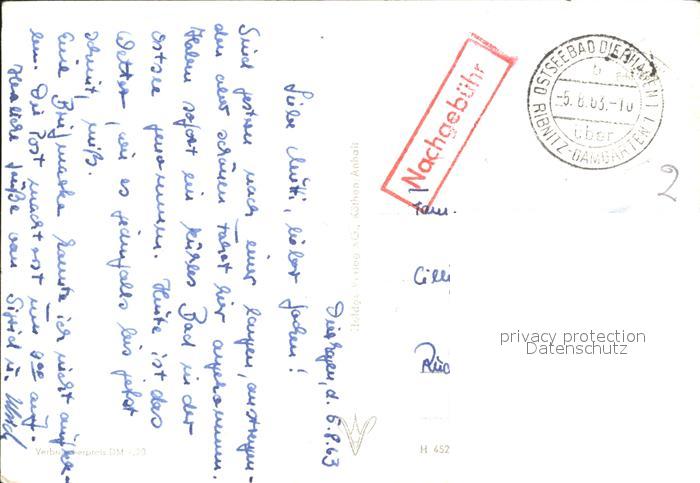 Dierhagen, d. 5.8.63
Liebe Mutti, lieber Jochen!
Sind gestern nach einer langen, anstrengen-
den aber schönen Fahrt hier angekommen.
Haben sofort ein kühles Bad in der
Ostsee genommen. Heute ist das
Wetter, wie es jedenfalls bis jetzt
scheint, mies.
Eine Briefmarke konnte ich nicht auftrei-
ben. Die Post macht erst um 9⁰⁰ auf.
Herzliche Grüße von Sigrid u.
Nachgebühr
OSTSEEBAD DIERHAGEN 1
b
-5.8.63.-10
über
RIBNITZ-DAMGARTEN 1
2
Fam.
Cilli
privacy protection
Datenschutz
Verbraucherpreis DM -,20
H 452